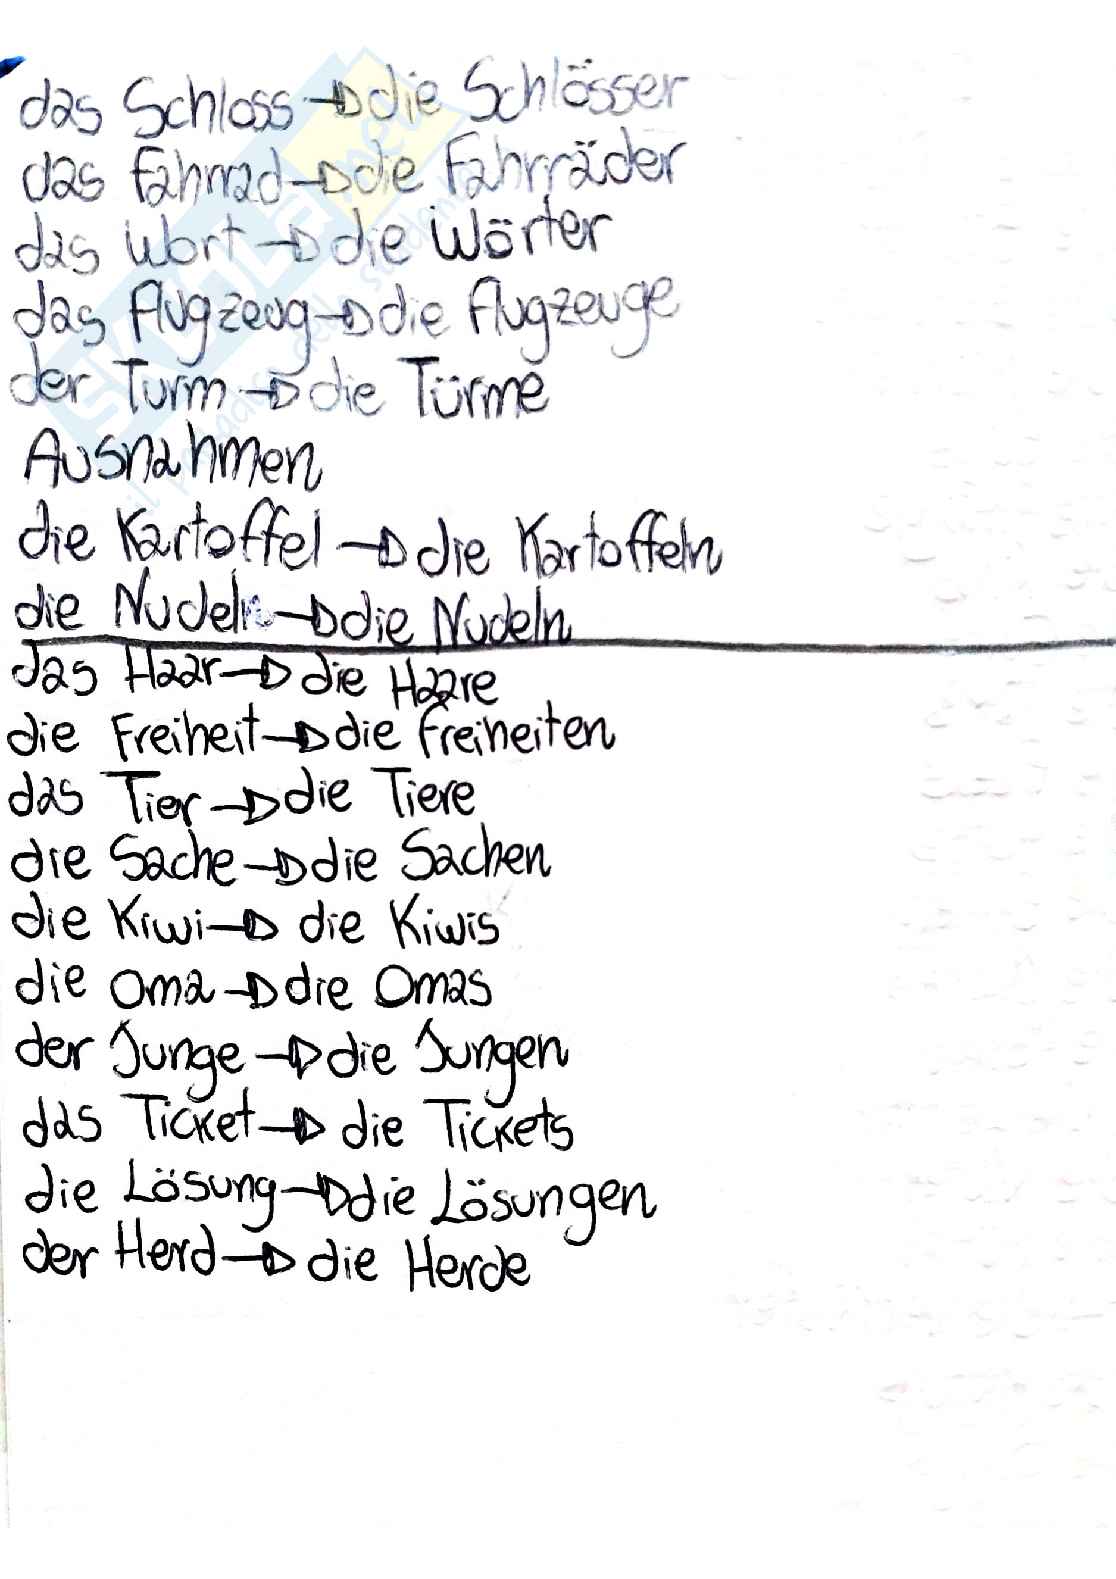 das Schloss → die Schlösser
das Fahrrad → die Fahrräder
das Wort → die Wörter
das Flugzeug → die Flugzeuge
der Turm → die Türme
Ausnahmen
die Kartoffel → die Kartoffeln
die Nudel → die Nudeln
das Haar → die Haare
die Freiheit → die Freiheiten
das Tier → die Tiere
die Sache → die Sachen
die Kiwi → die Kiwis
die Oma → die Omas
der Junge → die Jungen
das Ticket → die Tickets
die Lösung → die Lösungen
der Herd → die Herde